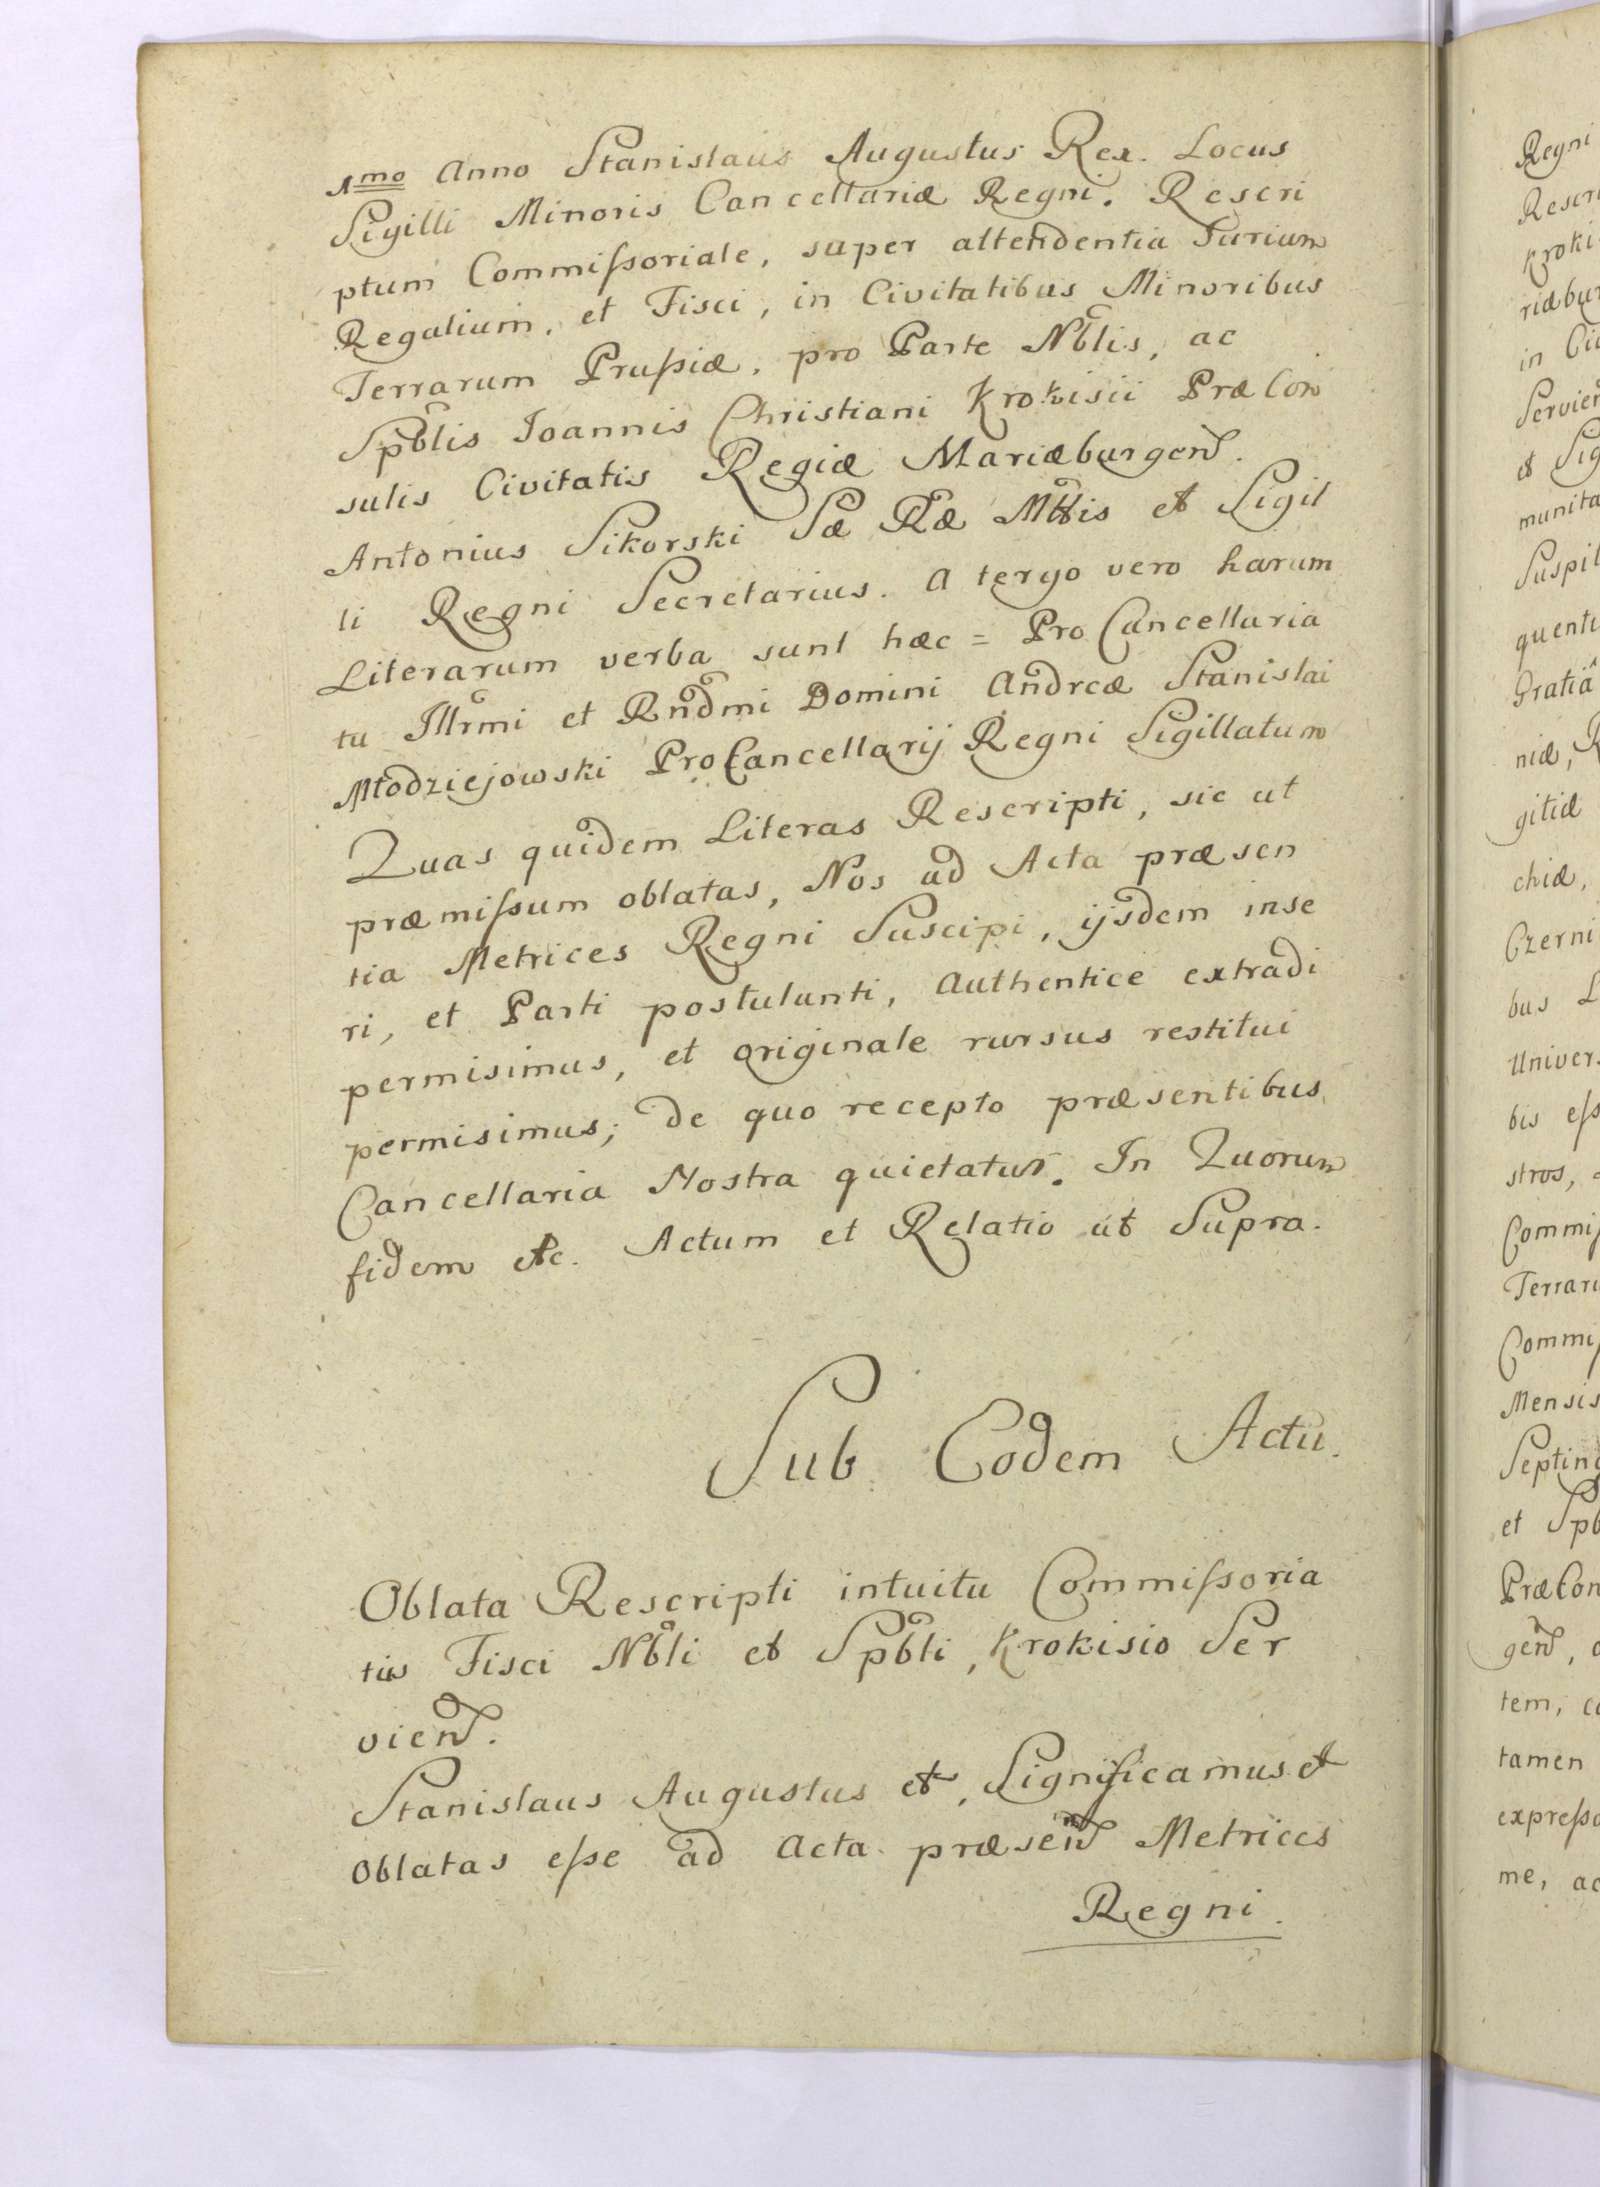 1mo Anno Stanislaus Augustus Rex. Locus
Sigilli Minoris Cancellariæ Regni. Rescri
ptum Commiſsoriale, super attendentia Jurium
Regalium, et Fisci, in Civitatibus Minoribus
Terrarum Pruſsiæ, pro Parte Nblis, ac
Spblis Joannis Christiani Krokisii Præ Con
sulis Civitatis Regiæ Mariæburgen.
Antonius Sikorski Sæ Ræ Mttis et Sigil
li Regni Secretarius. A tergo vero harum
Literarum verba sunt hæc = Pro Cancellaria
tu Illrmi et Rndmi Domini Andreæ Stanislai
Młodziejowski ProCancellarij Regni Sigillatum
Quas quidem Literas Rescripti, sic ut
præmiſsum oblatas, Nos ad Acta præsen
tia Metrices Regni Suscipi, ijsdem inse
ri, et Parti postulanti, Authentice extradi
permisimus, et originale rursus restitui
permisimus; de quo recepto præsentibus
Cancellaria Nostra quietatur. In Quorum
fidem etc. Actum et Relatio ut Supra.
Sub Eodem Actu.
Oblata Rescripti intuitu Commiſsoria
tus Fisci Nbli et Spbli, Krokisio Ser
vien.
Stanislaus Augustus et, Significamus et
Oblatas eſse ad Acta præsen Metrices
Regni.
Regni
Rescri
Kroki
riæbur
in Ci
Servien
et Sig
munita
Suspi
quenti
Gratiâ
niæ, R
gitiæ
chiæ,
Czerni
bus L
Univers
bis eſs
stros,
Commiſ
Terraru
Commiſ
Mensis
Septin
et Spb
PræCon
gen,
tem, c
tamen
expreſs
me, ac